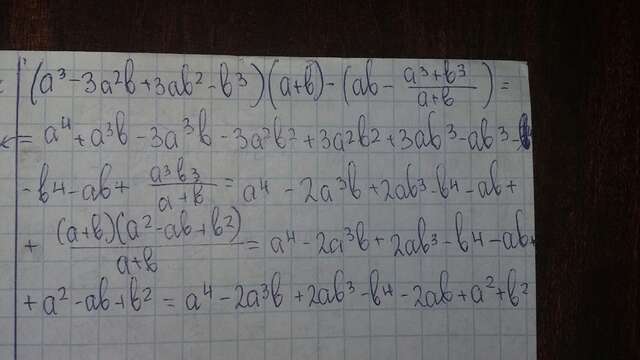 (a³-3a²b+3ab²-b³)(a+b)-(ab-\frac{a³+b³}{a+b})=
= a⁴+a³b-3a³b-3a²b²+3a²b²+3ab³-ab³-
-b⁴-ab+\frac{a³b³}{a+b}=a⁴-2a³b+2ab³-b⁴-ab+
+\frac{(a+b)(a²-ab+b²)}{a+b}=a⁴-2a³b+2ab³-b⁴-ab+
+a²-ab+b²=a⁴-2a³b+2ab³-b⁴-2ab+a²+b²